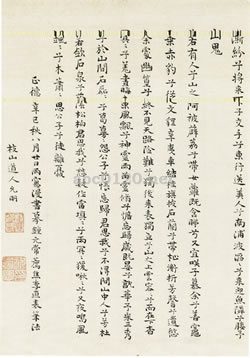 澌紛兮將來下子交手兮東行送美人兮南浦波滔滔兮來迎魚鱗兮媵予
山鬼
若有人兮山之阿被薜荔兮帶女蘿既含睇兮又宜咲子慕余兮善窈
窕乘赤豹兮從文狸辛夷車兮結桂旗被石蘭兮帶杜衡折芳馨兮遺所思
余處幽篁兮終不見天路險難兮獨後來表獨立兮山之上雲容容兮而在下杳
冥冥兮羌晝晦東風飄兮神靈雨留靈脩兮憺忘歸歲既晏兮孰華予采三秀
兮於山間石磊磊兮葛蔓蔓怨公子兮悵忘歸君思我兮不得閒山中人兮芳杜
若飲石泉兮蔭松柏君思我兮然疑作雷填填兮雨冥冥猨啾啾兮又夜鳴風
颯颯兮木蕭蕭思公子兮徒離憂
正德辛巳秋八月廿日雨窗書
枝山道人允明